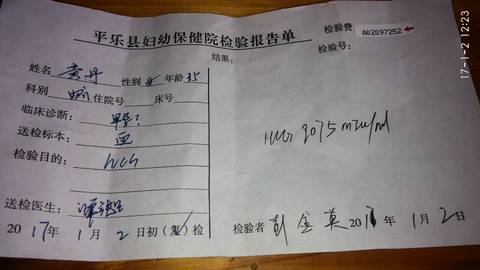 平乐县妇幼保健院检验报告单
检验费 A02097252
检验号：
结果：
姓名 黄丹 性别 女 年龄 35
科别 住院号 床号
临床诊断： 早孕？
送检标本： 血
检验目的： hCG
HCG 2075 mIu/ml
送检医生：
2017年1月2日初（复）检
检验者 彭金英 2017年1月2日
17-1-2 12:23